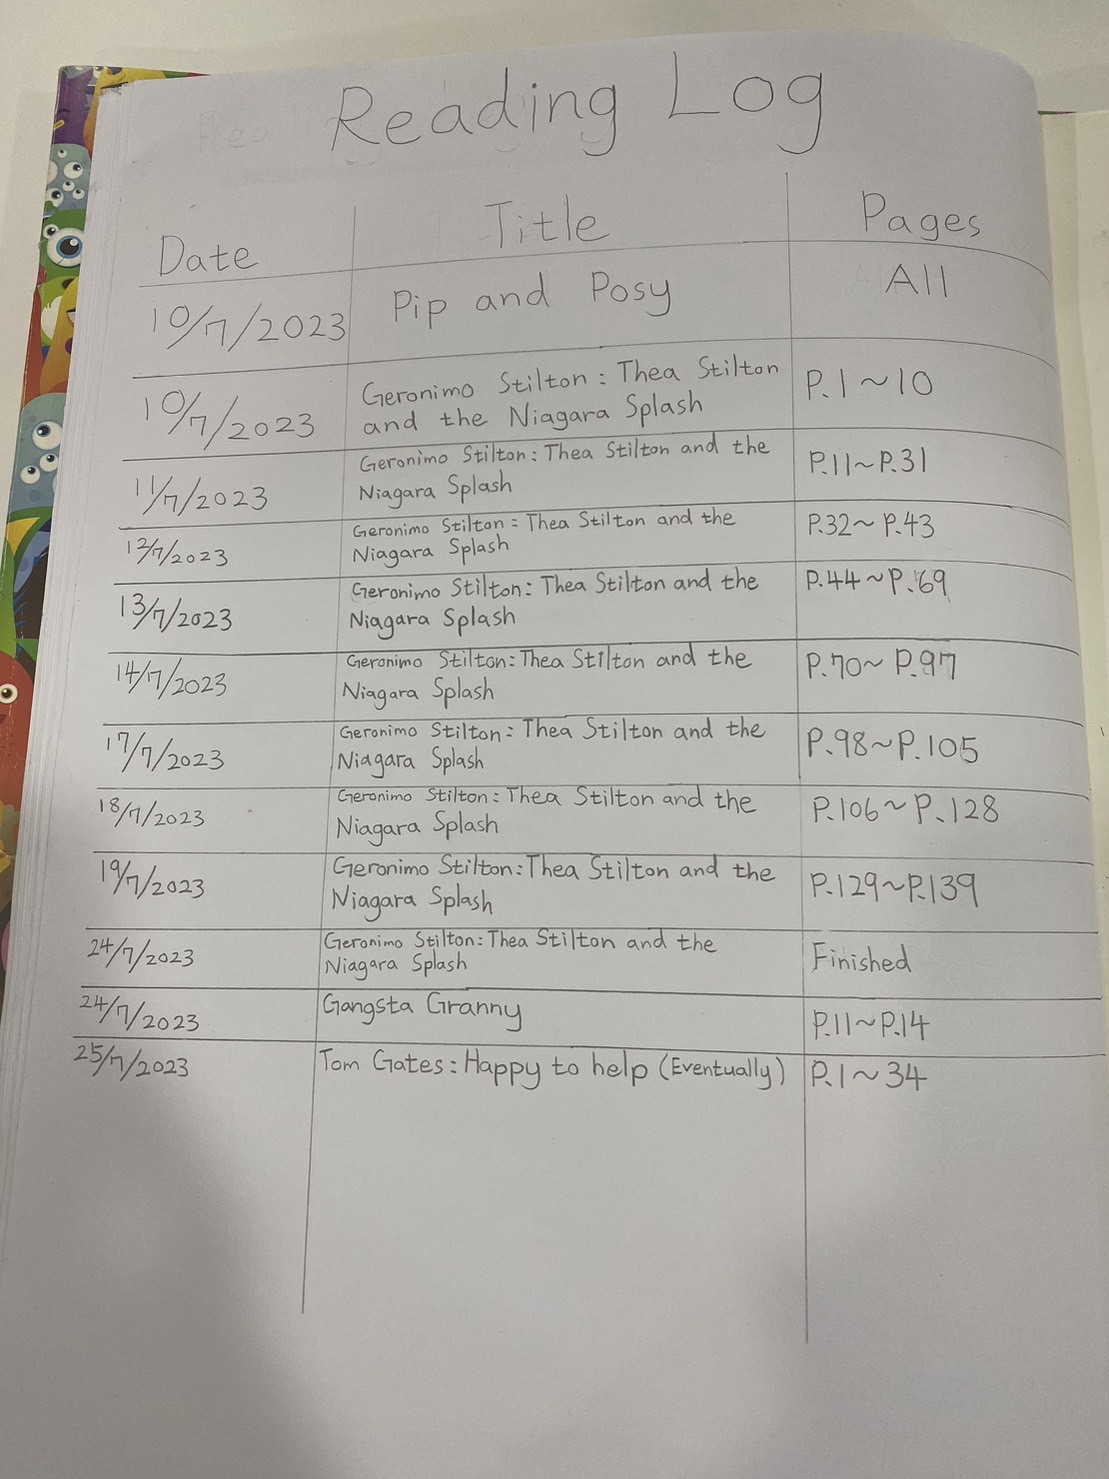 Reading Log
Date Title Pages
10/7/2023 Pip and Posy All
10/7/2023 Geronimo Stilton: Thea Stilton P.1~10
and the Niagara Splash
11/7/2023 Geronimo Stilton: Thea Stilton and the P.11~P.31
Niagara Splash
12/7/2023 Geronimo Stilton: Thea Stilton and the P.32~P.43
Niagara Splash
13/7/2023 Geronimo Stilton: Thea Stilton and the P.44~P.69
Niagara Splash
14/7/2023 Geronimo Stilton: Thea Stilton and the P.70~P.97
Niagara Splash
17/7/2023 Geronimo Stilton: Thea Stilton and the P.98~P.105
Niagara Splash
18/7/2023 Geronimo Stilton: Thea Stilton and the P.106~P.128
Niagara Splash
19/7/2023 Geronimo Stilton: Thea Stilton and the P.129~P.139
Niagara Splash
24/7/2023 Geronimo Stilton: Thea Stilton and the Finished
Niagara Splash
24/7/2023 Gangsta Granny P.11~P.14
25/7/2023 Tom Gates: Happy to help (Eventually) P.1~34